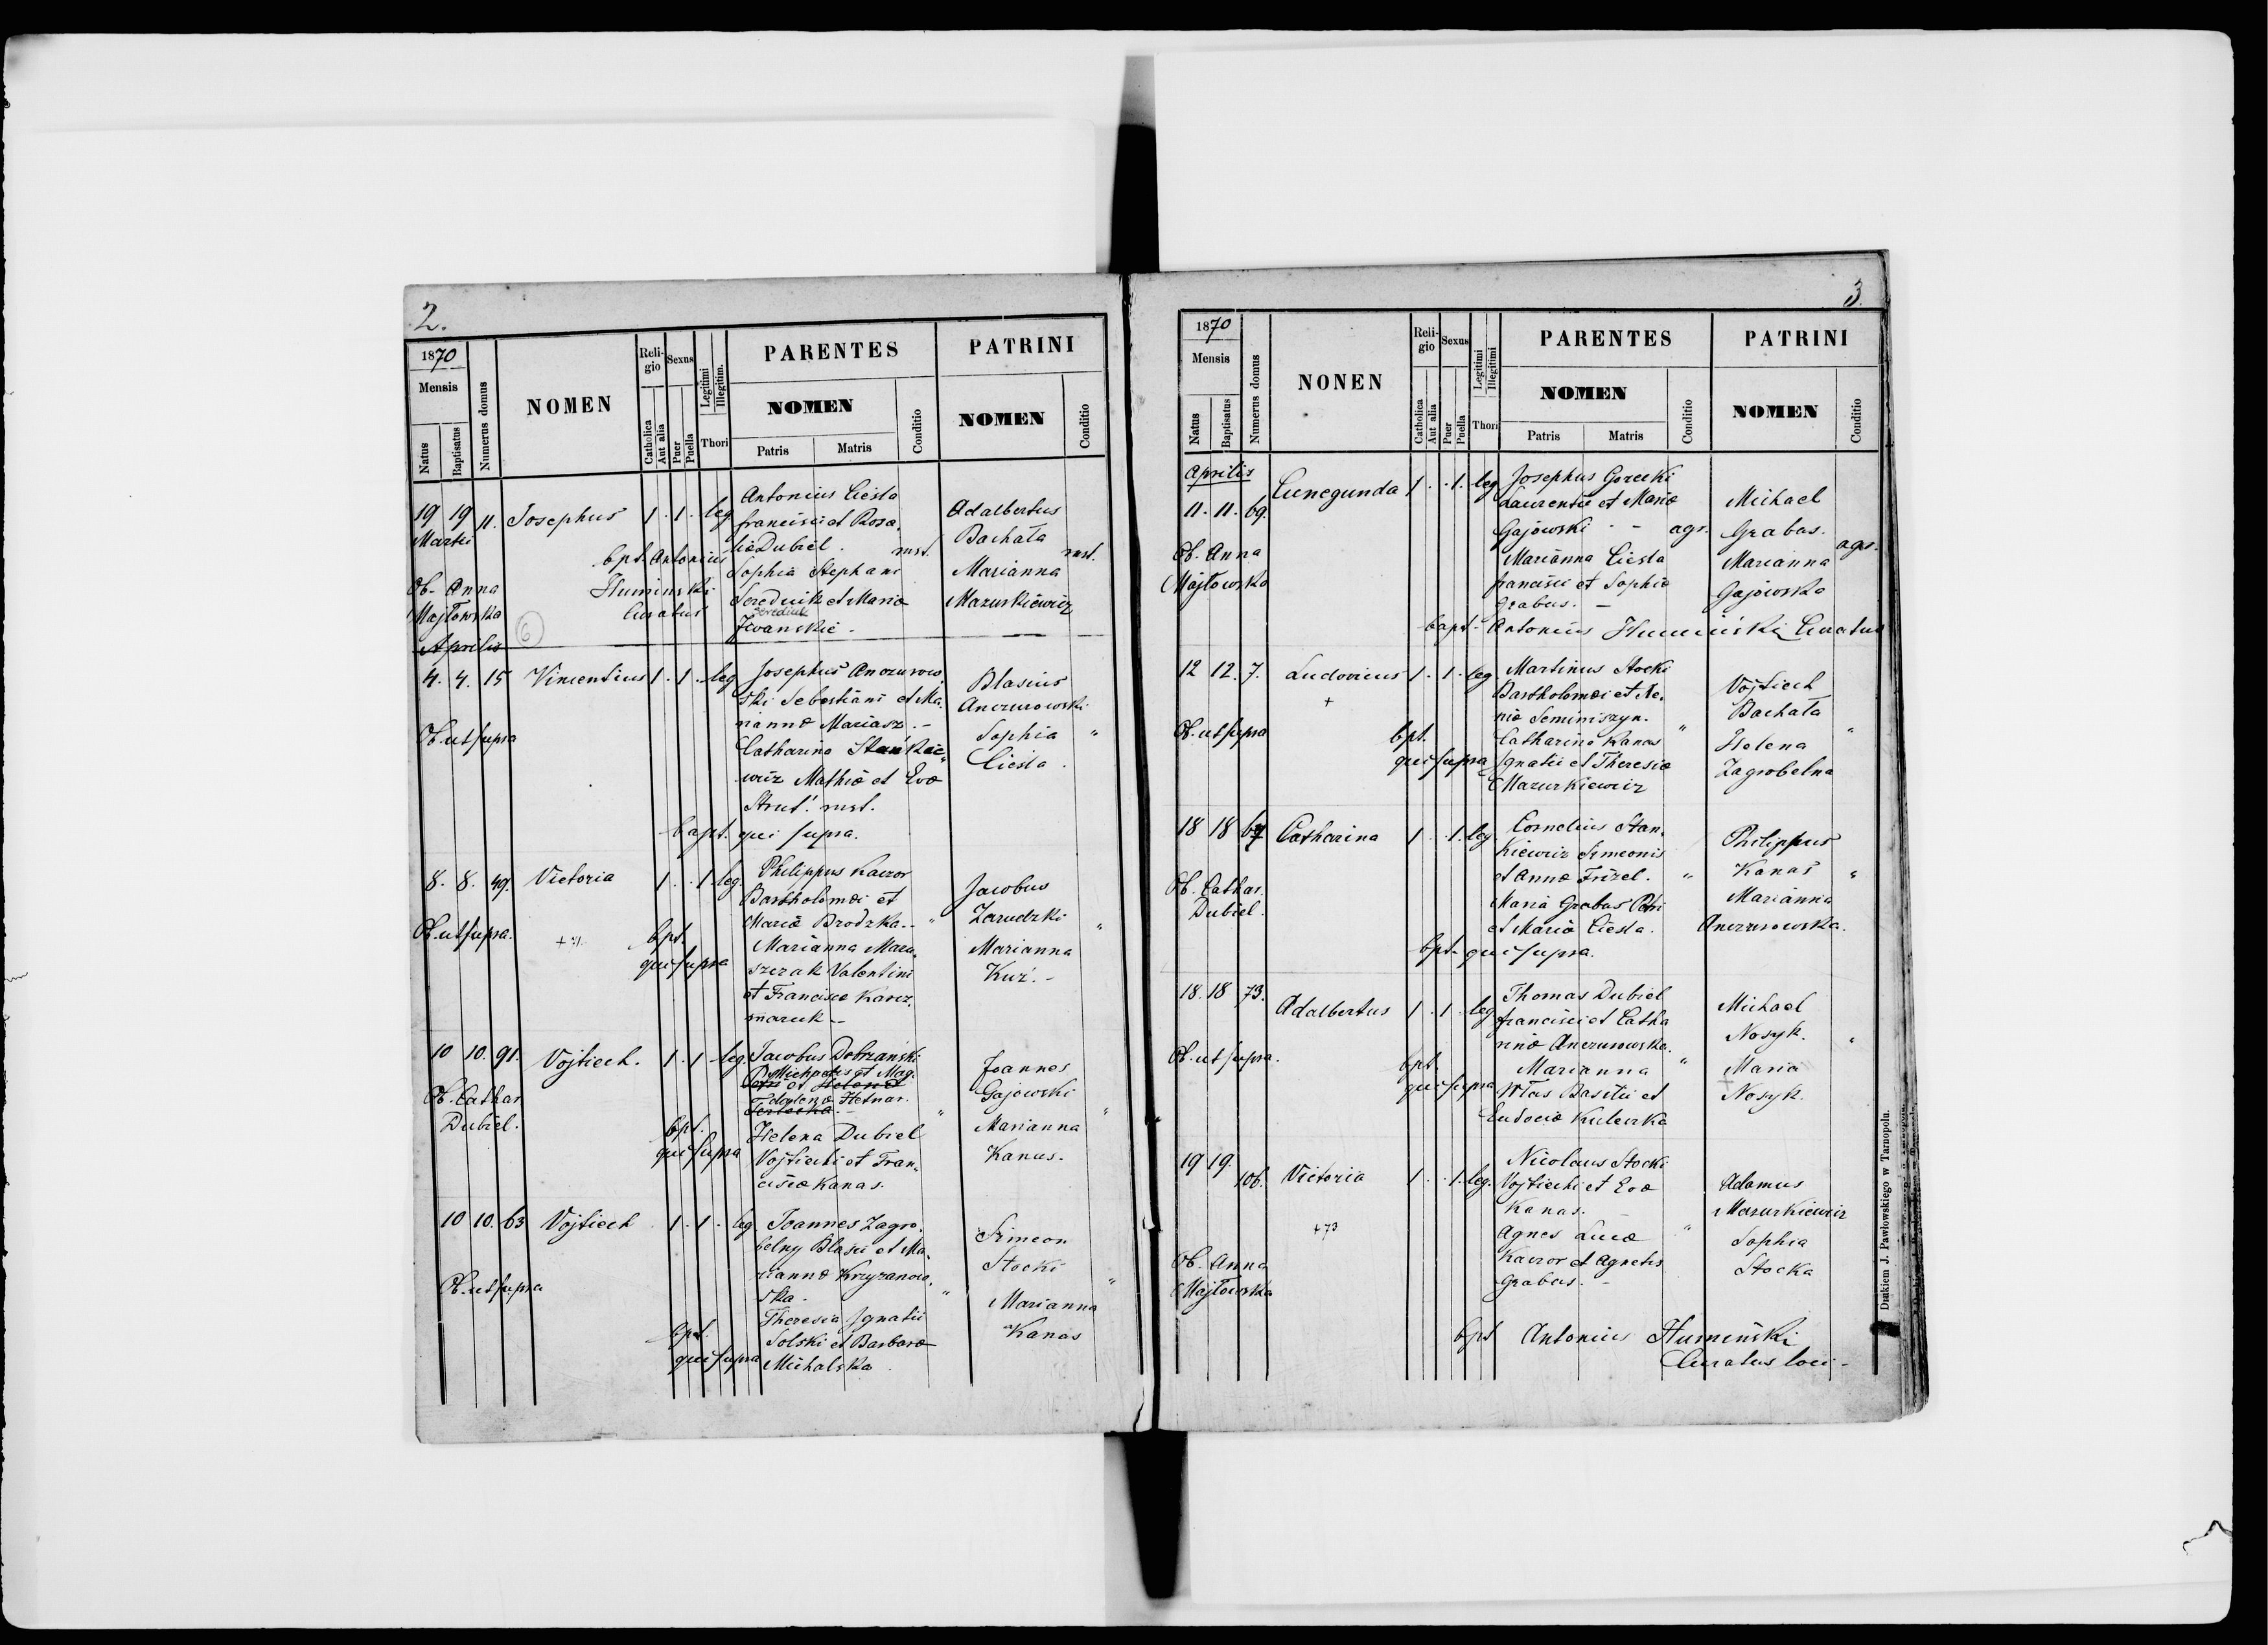 2.
1870
Mensis
Natus
Baptisatus
Numerus domus
NOMEN
Reli-
gio
Catholica
Aut alia
Sexus
Puer
Puella
Legitimi
Illegitim.
Thori
PARENTES
NOMEN
Patris
Matris
Conditio
PATRINI
NOMEN
Conditio
19 19 11. Josephus 1 . 1 . leg
Martii
Ob. Anna
Majtowska
bpt. Antonius
Huminski
Curatus
Antonius Ciesla
francisci et Rosa,
lie Dubiel. rust.
Sophia Stephani
Serednik et Maria
Serediuk
Iwanskie.
Adalbertus
Bachata
rust.
Marianna
Mazurkiewicz
6
Aprilis
4. 4. 15 Vincentius 1 . 1 . leg
Ob. ut supra
Josephus Anczurow,
ski Sebastiani et Ma,
rianna Mariasz. -
Catharina Stankie,
wicz Mathiæ et Evæ
Strut. rust.
bapt. qui supra.
Blasius
Anczurowski
Sophia "
Ciesla.
8. 8. 49. Victoria 1 . . 1 leg.
Ob. ut supra.
bpt.
qui supra
Philippus Kaczor
Bartholomæi et
Mariæ Brodzka. - "
Marianna Mara,
szczak Valentini
et Franciscæ Karcz,
maruk -
Jacobus
Zarudzki
"
Marianna
Kuz. -
10 10. 91. Vojtiech. 1 . 1 leg.
Ob. Cathar.
Dubiel.
bpt.
qui supra
Jacobus Dobrzański
Michaelis et Mag,
Petri et Helenæ
dalenæ Hetnar.
Terlecka. - "
Helena Dubiel
Vojtiechi et Fran,
ciscæ Kanas.
Joannes
Gajowski
"
Marianna
Kanus.
10 10. 63 Vojtiech 1 . 1 . leg
Ob. ut supra
bpt.
qui supra
Joannes Zagro,
belny Blasii et Ma,
riannæ Krzyzanow,
ska. "
Theresia Ignatii
Solski et Barbaræ
Michalska.
Simeon
Stocki
"
Marianna
Kanas
3.
1870
Mensis
Natus
Baptisatus
Numerus domus
NONEN
Reli-
gio
Catholica
Aut alia
Sexus
Puer
Puella
Legitimi
Illegitimi
Thori
PARENTES
NOMEN
Patris
Matris
Conditio
PATRINI
NOMEN
Conditio
Aprilis
11. 11. 69. Cunegunda 1 . . 1. leg
Ob. Anna
Majtowska
Josephus Gorecki
Laurentii et Mariæ
Gajowski - - agr.
Marianna Ciesla
francisci et Sophiæ
Grabas. -
Michael
Grabas.
agr.
Marianna
Gajowska
bapt. Antonius Humiński Curatus
12 12. 7. Ludovicus 1 . 1 . leg
+
Ob. ut supra
bpt.
qui supra
Martinus Stocki
Bartholomæi et Xe,
niæ Seminiszyn. "
Catharina Kanas
Ignatii et Theresiæ
Mazurkiewicz
Vojtiech
Bachata
"
Helena
Zagrobelna
18 18 67 Catharina 1 . . 1. leg.
Ob. Cathar.
Dubiel.
Cornelius Stan,
kiewicz Simeonis
et Annæ Frizel. "
Maria Grabas Petri
et Mariæ Ciesla.
bpt. qui supra.
Philippus
Kanas "
Marianna
Anczurowska.
18. 18 73. Adalbertus 1 . 1 . leg
Ob. ut supra.
bpt.
qui supra
Thomas Dubiel
francisci et Catha
rinæ Anczurowska. "
Marianna
Wlas Basilii et
Eudociæ Kulewka
Michael
Nosyk. "
Maria
Nosyk.
19 19. 106. Victoria 1 . . 1. leg.
+73
Ob. Anna
Majtowska
Nicolaus Stocki
Vojtiechi et Evæ
Kanas. "
Agnes Lucæ
Kaczor et Agnetis
Grabas. -
Adamus
Mazurkiewicz
Sophia
Stocka
bpt Antonius Humiński
Curatus loci -
Drukiem J. Pawłowskiego w Tarnopolu.